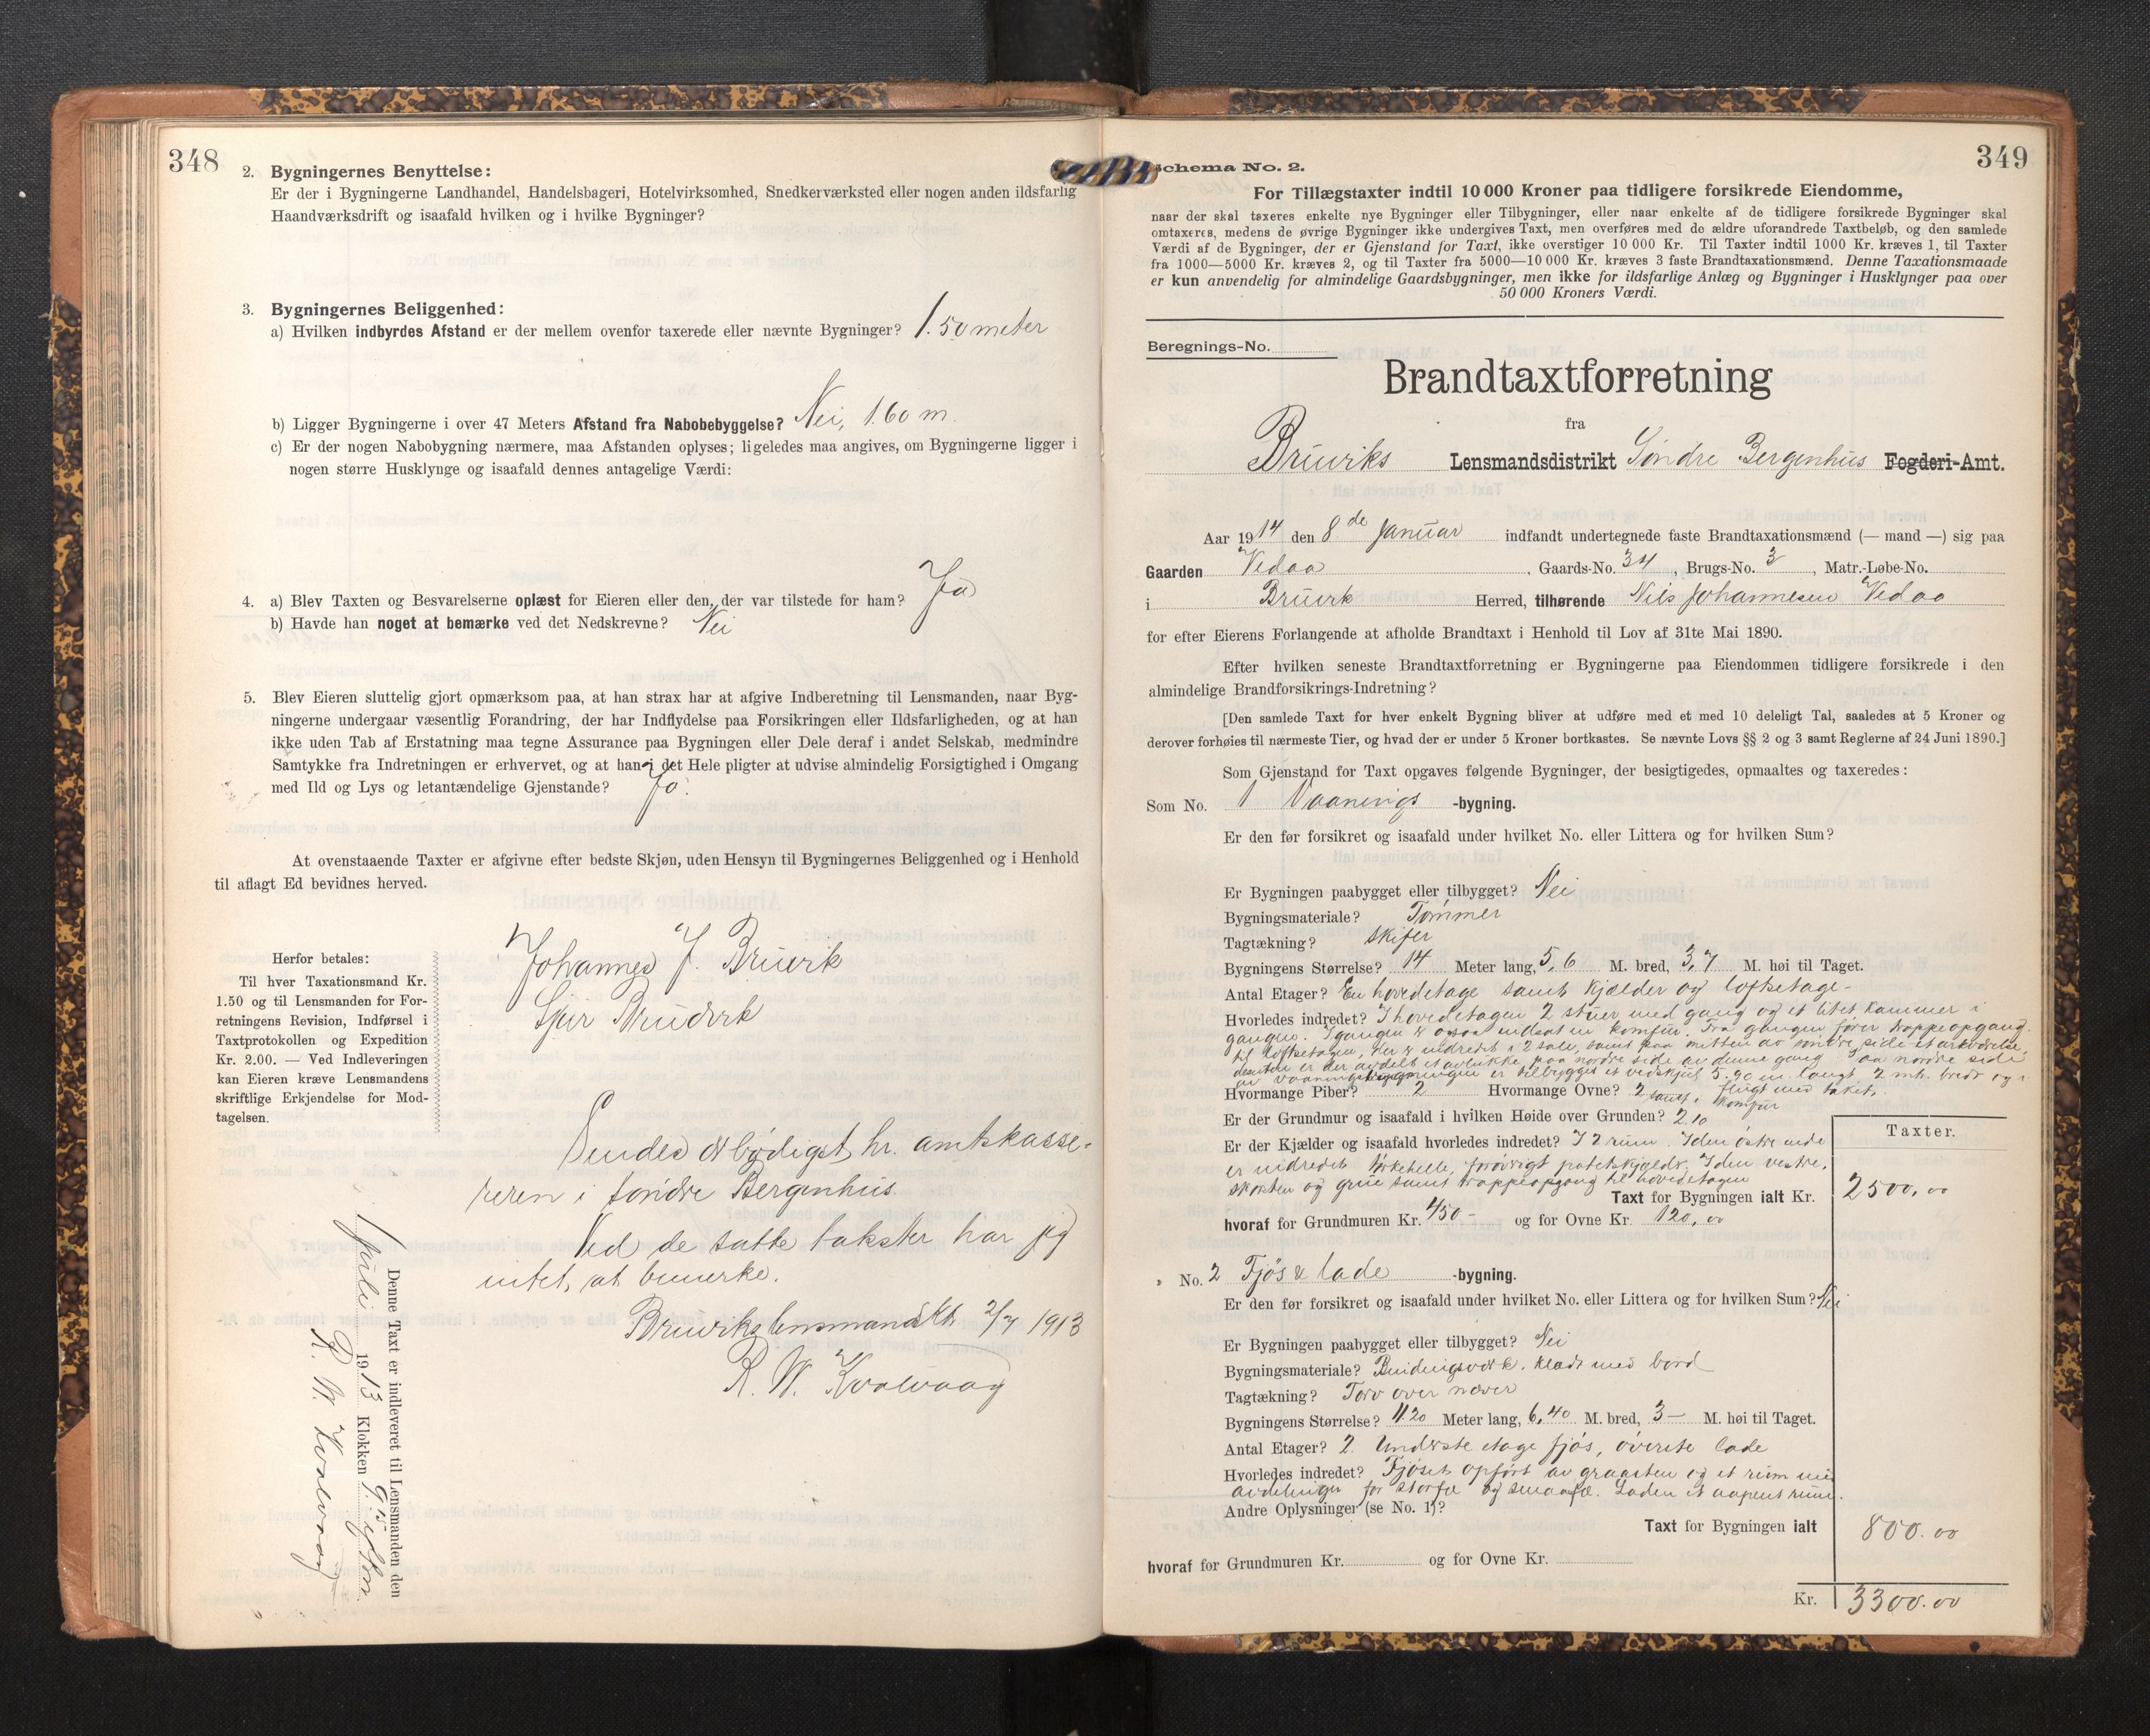 348
2. Bygningernes Benyttelse:
Er der i Bygningerne Landhandel, Handelsbageri, Hotelvirksomhed, Snedkerværksted eller nogen anden ildsfarlig
Haandværksdrift og isaafald hvilken og i hvilke Bygninger?
3. Bygningernes Beliggenhed:
a) Hvilken indbyrdes Afstand er der mellem ovenfor taxerede eller nævnte Bygninger? 1.50 meter
b) Ligger Bygningerne i over 47 Meters Afstand fra Nabobebyggelse? Nei, 1.60 m.
c) Er der nogen Nabobygning nærmere, maa Afstanden oplyses; ligeledes maa angives, om Bygningerne ligger i
nogen større Husklynge og isaafald dennes antagelige Værdi:
4. a) Blev Taxten og Besvarelserne oplæst for Eieren eller den, der var tilstede for ham? Ja
b) Havde han noget at bemærke ved det Nedskrevne? Nei
5. Blev Eieren sluttelig gjort opmærksom paa, at han strax har at afgive Indberetning til Lensmanden, naar Byg-
ningerne undergaar væsentlig Forandring, der har Indflydelse paa Forsikringen eller Ildsfarligheden, og at han
ikke uden Tab af Erstatning maa tegne Assurance paa Bygningen eller Dele deraf i andet Selskab, medmindre
Samtykke fra Indretningen er erhvervet, og at han i det Hele pligter at udvise almindelig Forsigtighed i Omgang
med Ild og Lys og letantændelige Gjenstande? Ja.
At ovenstaaende Taxter er afgivne efter bedste Skjøn, uden Hensyn til Bygningernes Beliggenhed og i Henhold
til aflagt Ed bevidnes herved.
Johannes J. Bruvik
Sjur Bruvik
Herfor betales:
Til hver Taxationsmand Kr.
1.50 og til Lensmanden for For-
retningens Revision, Indførsel i
Taxtprotokollen og Expedition
Kr. 2.00. — Ved Indleveringen
kan Eieren kræve Lensmandens
skriftlige Erkjendelse for Mod-
tagelsen.
Sendes ærbødigst hr. amtskasse-
reren i søndre Bergenhus.
Ved de satte takster har jeg
intet at bemerke.
Bruviks lensmandskt. 2/7 1913
R. W. Kvalvaag
Denne Taxt er indleveret til Lensmanden den
1 juli 1913 Klokken 9.15
R. W. Kvalvaag
349
Schema No. 2.
For Tillægstaxter indtil 10 000 Kroner paa tidligere forsikrede Eiendomme,
naar der skal taxeres enkelte nye Bygninger eller Tilbygninger, eller naar enkelte af de tidligere forsikrede Bygninger skal
omtaxeres, medens de øvrige Bygninger ikke undergives Taxt, men overføres med de ældre uforandrede Taxtbeløb, og den samlede
Værdi af de Bygninger, der er Gjenstand for Taxt, ikke overstiger 10 000 Kr. Til Taxter indtil 1000 Kr. kræves 1, til Taxter
fra 1000—5000 Kr. kræves 2, og til Taxter fra 5000—10 000 Kr. kræves 3 faste Brandtaxationsmænd. Denne Taxationsmaade
er kun anvendelig for almindelige Gaardsbygninger, men ikke for ildsfarlige Anlæg og Bygninger i Husklynger paa over
50 000 Kroners Værdi.
Beregnings-No.
Brandtaxtforretning
fra
Bruviks Lensmandsdistrikt Søndre Bergenhus Fogderi-Amt.
Aar 1914 den 8de Januar indfandt undertegnede faste Brandtaxationsmænd (— mand —) sig paa
Gaarden Vedaa, Gaards-No. 34, Brugs-No. 3, Matr.-Løbe-No.
i Bruvik Herred, tilhørende Nils Johannesen Vedaa
for efter Eierens Forlangende at afholde Brandtaxt i Henhold til Lov af 31te Mai 1890.
Efter hvilken seneste Brandtaxtforretning er Bygningerne paa Eiendommen tidligere forsikrede i den
almindelige Brandforsikrings-Indretning?
[Den samlede Taxt for hver enkelt Bygning bliver at udføre med et med 10 deleligt Tal, saaledes at 5 Kroner og
derover forhøies til nærmeste Tier, og hvad der er under 5 Kroner bortkastes. Se nævnte Lovs §§ 2 og 3 samt Reglerne af 24 Juni 1890.]
Som Gjenstand for Taxt opgaves følgende Bygninger, der besigtigedes, opmaaltes og taxeredes:
Som No. 1 Vaanings -bygning.
Er den før forsikret og isaafald under hvilket No. eller Littera og for hvilken Sum?
Er Bygningen paabygget eller tilbygget? Nei
Bygningsmateriale? Tømmer
Tagtækning? Skifer
Bygningens Størrelse? 14 Meter lang, 5,6 M. bred, 3,7 M. høi til Taget.
Antal Etager? En hovedetage samt kjælder og loftsetage-
Hvorledes indredet? I hovedetagen 2 stuer med gang og et litet kammer i
gangen. I gangen er ogsaa indsat en komfur. Fra gangen fører trappeopgang
til loftsetagen, der er indredet i 2 sale, samt paa midten av søndre side et arkværelse,
desuten er der avdelt et avlukke paa nordre side av denne gang. Paa nordre side
av vaaningsbygningen er tilbygget et vedskjul 5.90 m. langt 2 mtr. bredt og i
flugt med taket.
Hvormange Piber? 2 Hvormange Ovne? 2 samt 1 komfur
Er der Grundmur og isaafald i hvilken Høide over Grunden? 2.10
Er der Kjælder og isaafald hvorledes indredet? I 2 rum. I den østre ende
er indredet tørkehelle, forøvrigt potetskjelder. I den vestre,
skorsten og grue samt trappeopgang til hovedetagen
Taxter.
Taxt for Bygningen ialt Kr. 2500,00
hvoraf for Grundmuren Kr. 450- og for Ovne Kr. 120,00
" No. 2 Fjøs & lade -bygning.
Er den før forsikret og isaafald under hvilket No. eller Littera og for hvilken Sum? Nei
Er Bygningen paabygget eller tilbygget? Nei
Bygningsmateriale? Bindingsverk, klædt med bord
Tagtækning? Torv over næver
Bygningens Størrelse? 11.20 Meter lang, 6,40 M. bred, 3— M. høi til Taget.
Antal Etager? 2. Underste etage fjøs, øverste lade
Hvorledes indredet? Fjøset opført av graasten og et rum med
avdelinger for storfæ og smaafæ. Laden et aapent rum.
Andre Oplysninger (se No. 1)?
Taxt for Bygningen ialt 800.00
hvoraf for Grundmuren Kr. og for Ovne Kr.
Kr. 3300.00